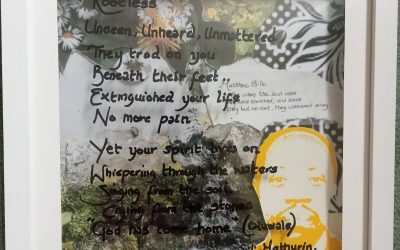 Rootless
Unseen, Unheard, Unmattered
They trod on you
Beneath their feet..
Extinguished your life
No more pain
Matthew 13:
when the sun rose
scorched, and since
they had no root, they withered away
Yet your spirit lives on
Whispering through the waters
Singing from the soil
Crying from the stones
"God has come home" (Oluwale)
Mathurin.